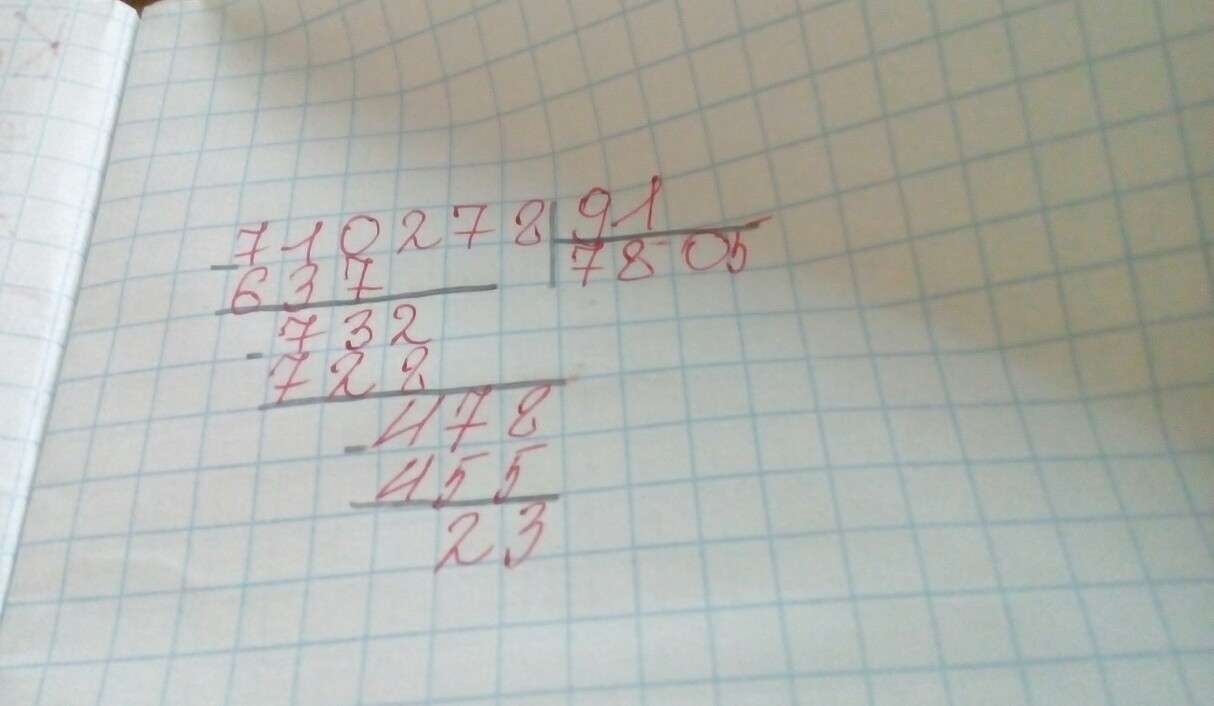 710278 91
637 7805
732
728
478
455
23